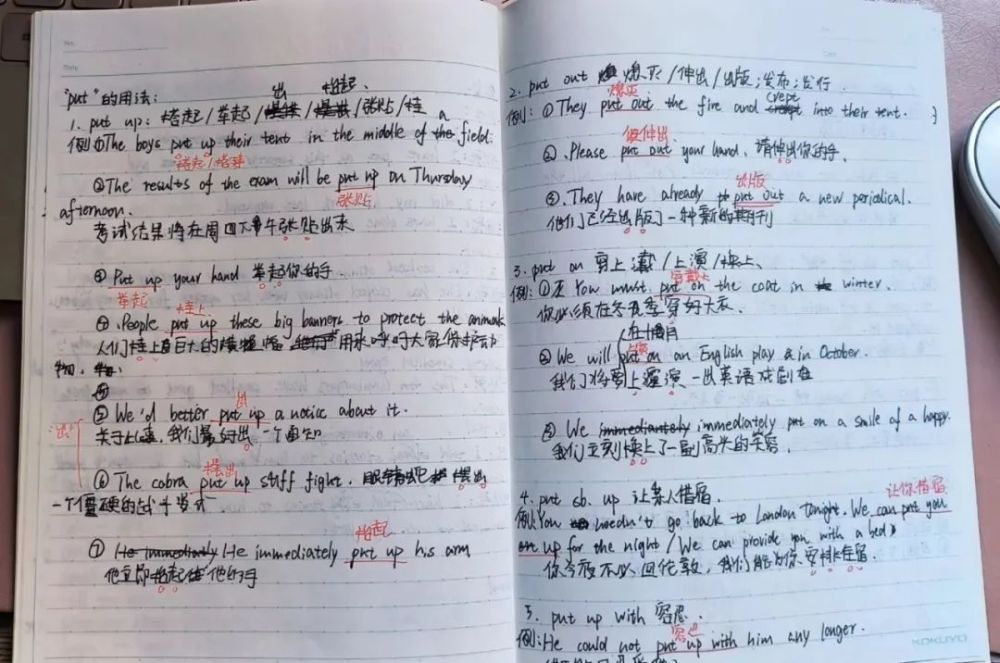 "put"的用法:
出 抬起.
1. put up: 搭起/举起/张贴/挂
a
例①The boys put up their tent in the middle of the field.
搭起/搭建
②The results of the exam will be put up on Thursday
张贴
afternoon.
考试结果将在周四下午张贴出来
③ Put up your hand 举起你的手
举起 挂上
④.People put up these big banners to protect the animals
人们挂上巨大的横幅 用来呼吁大家保护动
物.
出
⑤ We'd better put up a notice about it.
关于此事,我们最好出一个通知
出
摆出
⑥ The cobra put up stiff fight. 眼镜蛇 摆出
一个僵硬的战斗姿式
抬起
⑦ He immediately He immediately put up his arm
他立即抬起 他的手
2. put out 熄灭/伸出/出版;发布;发行
熄灭 crept
例: ① They put out the fire and into their tent.
伸出
②.Please put out your hand. 请伸出你的手.
出版
③.They have already put out a new periodical.
他们已经出版了一种新的期刊
3. put on 穿上 戴/上演/换上、
穿戴上
例:① You must put on the coat in winter.
你必须在冬季穿好大衣.
在十月
上演
② We will put on an English play in October.
我们将要上演一出英语戏剧在
③ We immediately immediately put on a smile of a happy.
我们立刻换上了一副高兴的笑容.
4. put sb. up 让某人借宿.
让你借宿
例:You needn't go back to London tonight. We can put you
up for the night/We can provide you with a bed)
你今夜不必回伦敦,我们能为你安排住宿
5. put up with 容忍.
容忍
例:He could not put up with him any longer.
KOKUYO